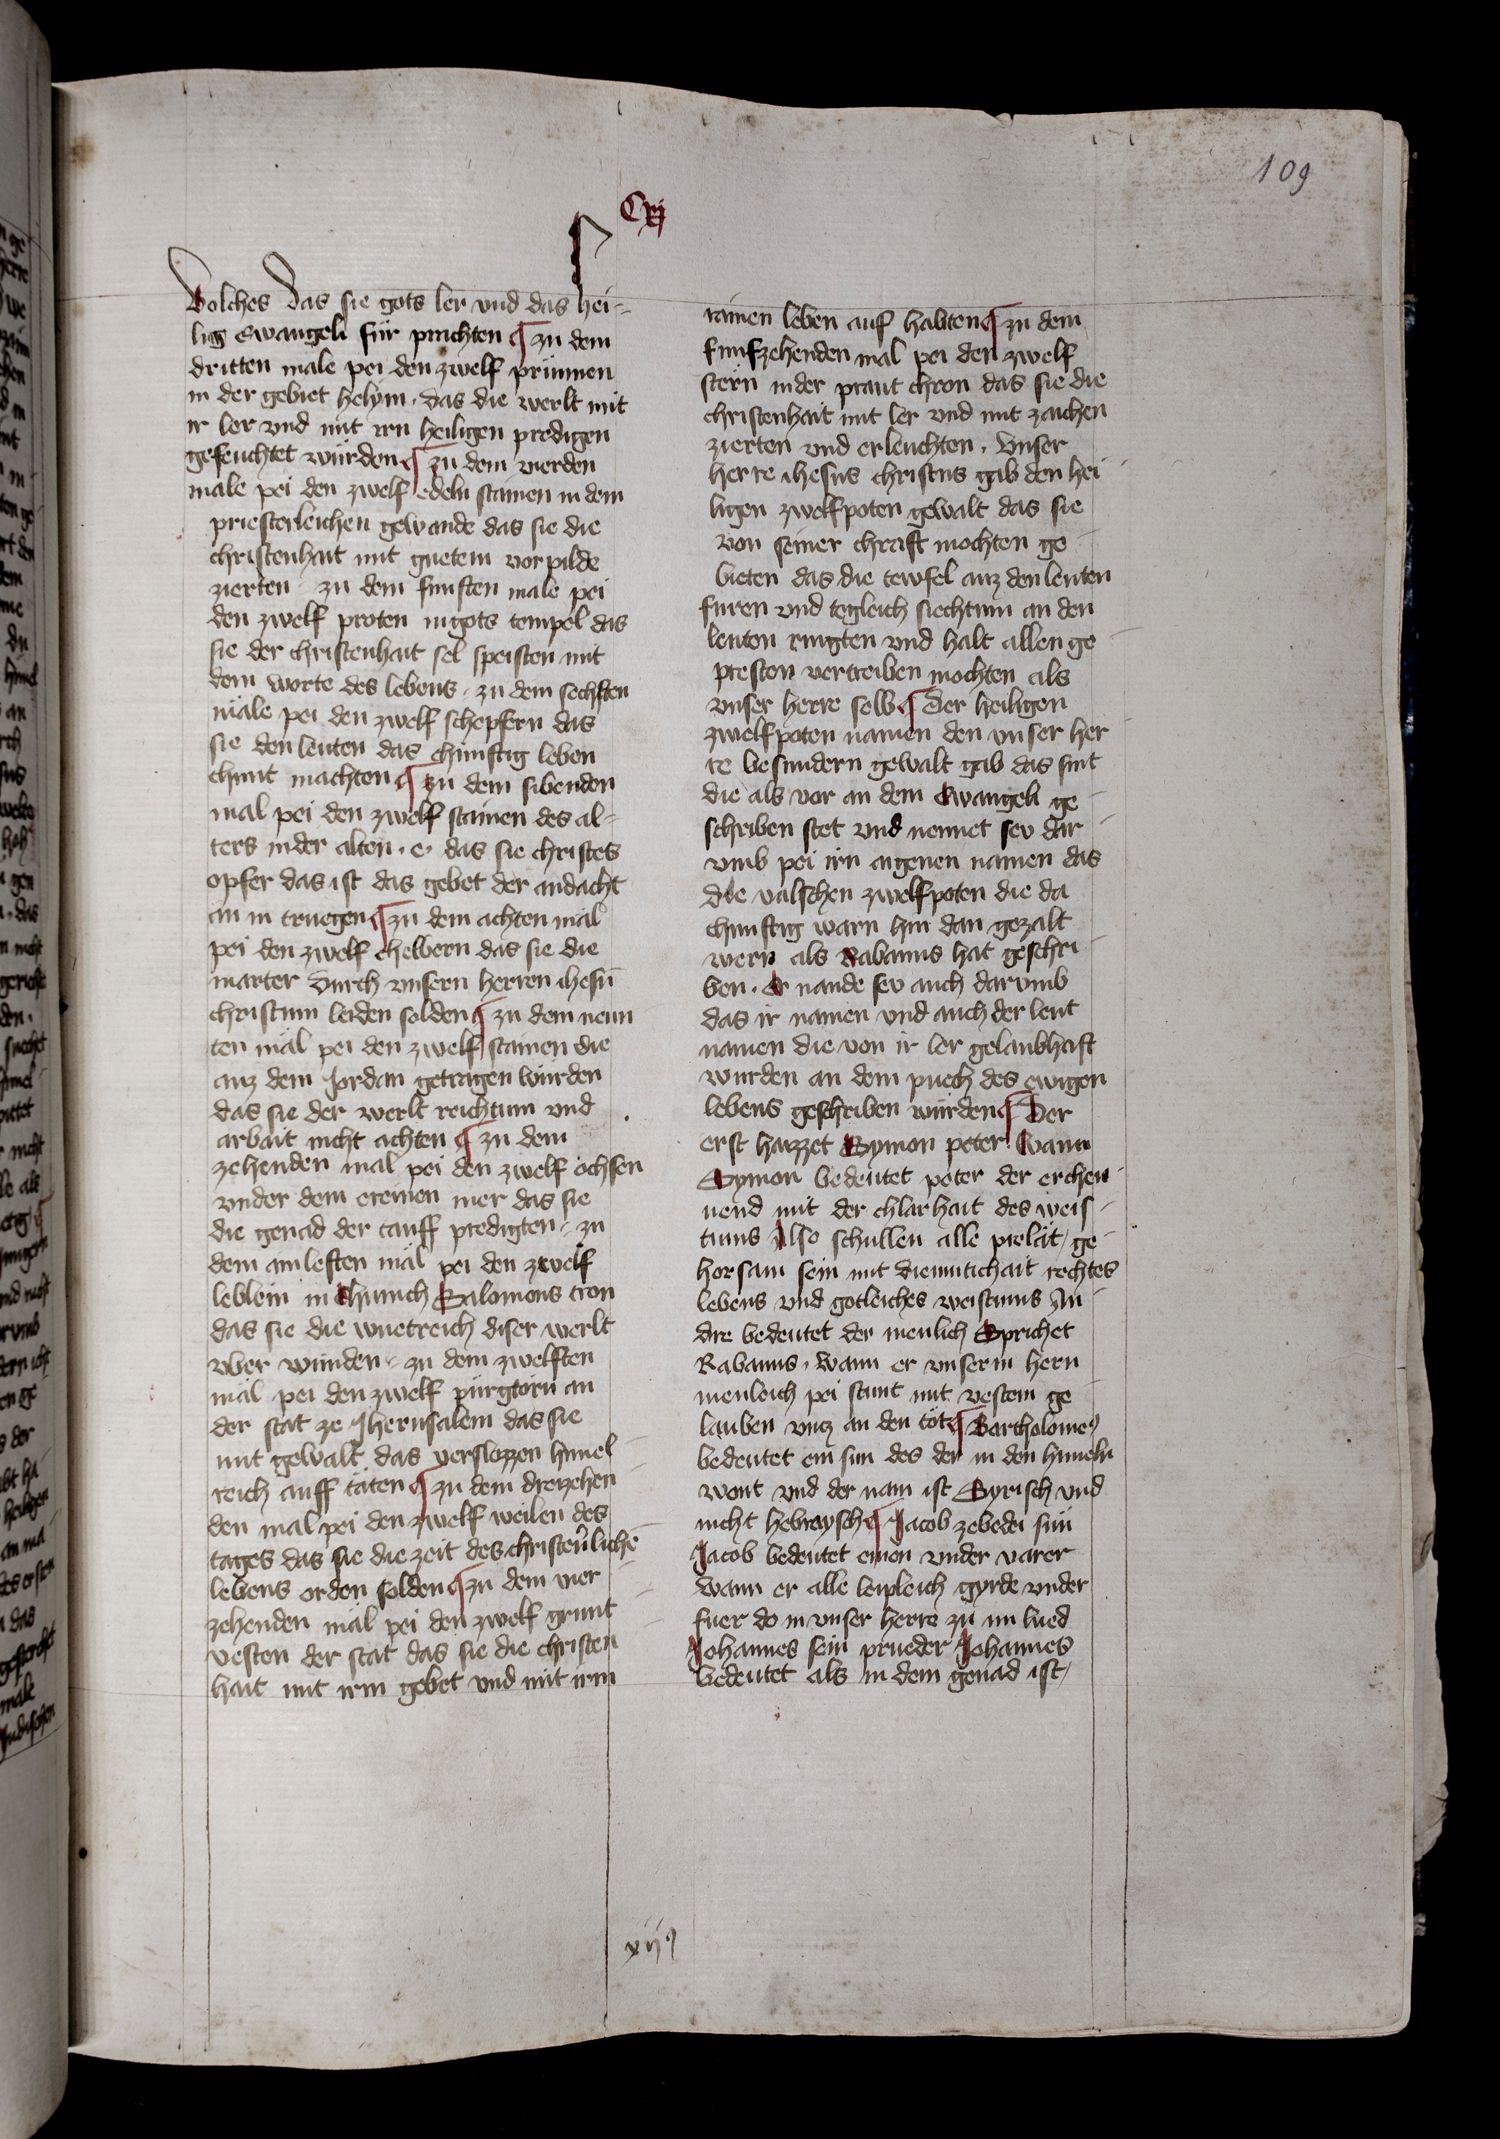 109
Cxj
volches das sie gots ler vnd das hei-
lig Ewangeli für prachten ¶ zu dem
dritten male pei den zwelf prünnen
in der gebiet helym · das die werlt mit
ir ler vnd mit irn heiligen predigen
gefeuchtet würden ¶ zu dem vierden
male pei den zwelf edeln stainen in dem
priesterleichen gewande das sie die
christenhait mit guetem vorpilde
zierten · zu dem funften male pei
den zwelf proten in gots tempel das
sie der christenhait sel speisten mit
dem worte des lebens · zu dem sechsten
male pei den zwelf schepfern das
sie den leuten das chunftig leben
chunt machten ¶ zu dem sibenden
mal pei den zwelf stainen des al-
ters in der alten · e · das sie christes
opfer das ist das gebet der andacht
an in truegen ¶ zu dem achten mal
pei den zwelf chelbern das sie die
marter durch vnsern herren ihesu
christum leiden solden ¶ zu dem neun
ten mal pei den zwelf stainen die
auz dem Jordan getragen würden
das sie der werlt reichtum vnd
arbait nicht achten ¶ zu dem
zehenden mal pei den zwelf ochsen
vnder dem ereinen mer das sie
die genad der tauff predigten · zu
dem ainleften mal pei den zwelf
leblein in Chunich Salomons tron
das sie die wuetreich diser werlt
vber wunden · zu dem zwelften
mal pei den zwelf pürgtorn an
der stat ze Jherusalem das sie
mit gewalt das verslozzen himel
reich auff täten ¶ zu dem dreizehen
den mal pei den zwelf weilen des
tages das sie die zeit des christenliche
lebens orden solden ¶ zu dem vier
zehenden mal pei den zwelf grunt
vesten der stat das sie die christen
hait mit irm gebet vnd mit irm
rainen leben auf habten ¶ zu dem
funfzehenden mal pei den zwelf
stern in der praut chron das sie die
christenhait mit ler vnd mit zaichen
zierten vnd erleuchten · Vnser
herre ihesus christus gab den hei
ligen zwelfpoten gewalt das sie
von seiner chraft mochten ge
bieten das die tewfel auz den leuten
furen vnd tegleich siechtum an den
leuten ringten vnd halt allen ge
presten vertreiben mochten als
vnser herre selb ¶ Der heiligen
zwelfpoten namen den vnser her
re besundern gewalt gab das sint
die als vor an dem Ewangeli ge
schriben stet vnd nennet sev dar
vmb pei irn aigenen namen das
die valschen zwelfpoten die da
chunftig warn hin dan gezalt
wern als Rabanus hat geschri
ben · Er nande sev auch darvmb
das ir namen vnd auch der leut
namen die von ir ler gelaubhaft
wurden an dem puech des ewigen
lebens geschriben würden ¶ Der
erst haizzet Symon peter Wann
Symon bedeutet peter der erchen
nend mit der chlarhait des weis
tums Also schullen alle prelät ge
horsam sein mit diemutichait rechtes
lebens vnd gotleiches weistums An
dre bedeutet der menlich Sprichet
Rabanus · Wann er vnserm hern
menleich pei stunt mit vestem ge
lauben vncz an den tot ¶ Bartholomeus
bedeutet ein sun des der in den himeln
wont vnd der nam ist Syrisch vnd
nicht hebraysch ¶ Jacob zebedei sun
Jacob bedeutet einen vnder varer
wann er alle leipleich gyrde vnder
fuer do in vnser herre zu im lued
Johannes sein prueder Johannes
bedeutet als in dem genad ist